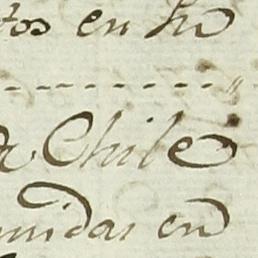 tos en su
Chile
nidas en